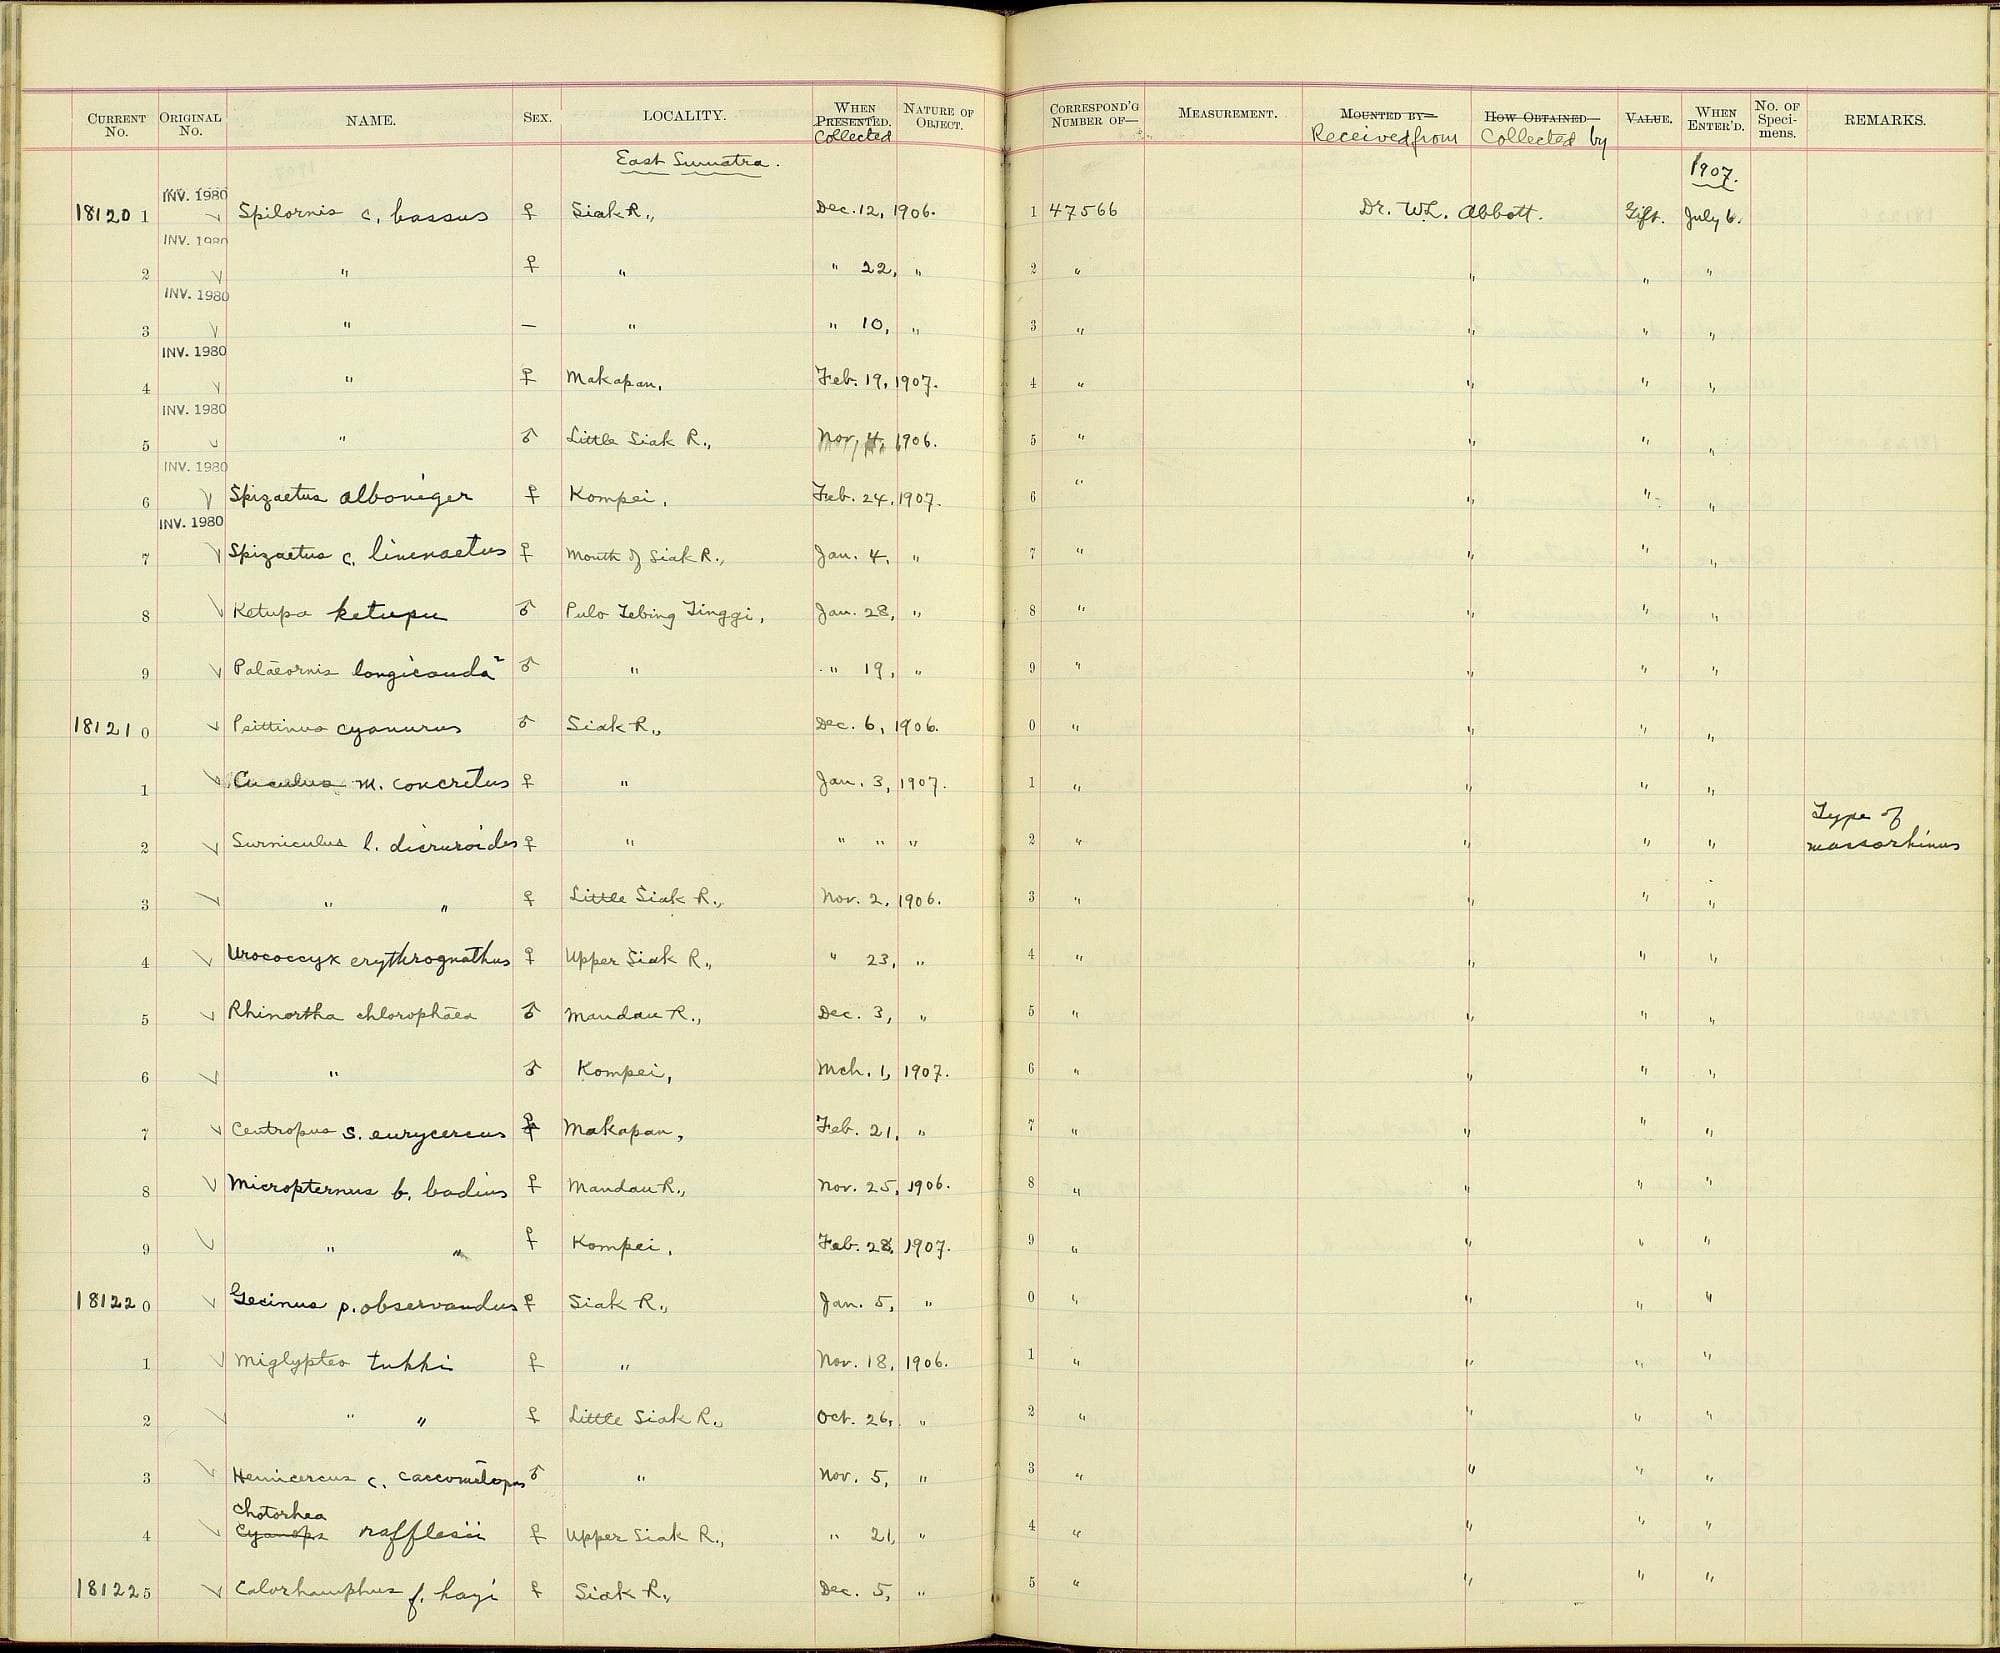 CURRENT No. ORIGINAL No. NAME. SEX. LOCALITY. WHEN PRESENTED. Collected NATURE OF OBJECT. CORRESPOND'G NUMBER OF— MEASUREMENT. MOUNTED BY— Received from HOW OBTAINED— Collected by VALUE. WHEN ENTER'D. No. OF Speci-mens. REMARKS.
East Sumatra. 1907.
INV. 1980
181201 Spilornis c. bassus ♀ Siak R., Dec. 12, 1906. 1 47566 Dr. W.L. Abbott. Gift. July 6.
INV. 1980
2 " ♀ " " 22, " 2 " " " "
INV. 1980
3 " — " " 10, " 3 " " " "
INV. 1980
4 " ♀ Makapan, Feb. 19, 1907. 4 " " " "
INV. 1980
5 " ♂ Little Siak R., Nov, 4, 1906. 5 " " " "
INV. 1980
6 Spizaetus alboniger ♀ Kompei, Feb. 24, 1907. 6 " " " "
INV. 1980
7 Spizaetus c. limnaetus ♀ Mouth of Siak R., Jan. 4, " 7 " " " "
8 Ketupa ketupu ♂ Pulo Tebing Tinggi, Jan. 28, " 8 " " " "
9 Palaeornis longicauda ♂ " " 19, " 9 " " " "
181210 Psittinus cyanurus ♂ Siak R., Dec. 6, 1906. 0 " " " "
1 Cuculus m. concretus ♀ " Jan. 3, 1907. 1 " " " "
2 Surniculus l. dicruroides ♀ " " " " 2 " " " " Type of massorhinus
3 " " ♀ Little Siak R., Nov. 2, 1906. 3 " " " "
4 Urococcyx erythrognathus ♀ Upper Siak R., " 23, " 4 " " " "
5 Rhinortha chlorophaea ♂ Mandau R., Dec. 3, " 5 " " " "
6 " ♂ Kompei, Mch. 1, 1907. 6 " " " "
7 Centropus s. eurycercus ♀ Makapan, Feb. 21, " 7 " " " "
8 Micropternus b. badius ♀ Mandau R., Nov. 25, 1906. 8 " " " "
9 " " ♀ Kompei, Feb. 28, 1907. 9 " " " "
181220 Gecinus p. observandus ♀ Siak R., Jan. 5, " 0 " " " "
1 Miglyptes tukki ♀ " Nov. 18, 1906. 1 " " " "
2 " " ♀ Little Siak R., Oct. 26, " 2 " " " "
3 Hemicercus c. coccometopus ♂ " Nov. 5, " 3 " " " "
Chotorhea
4 Cyanops rafflesii ♀ Upper Siak R., " 21, " 4 " " " "
181225 Calorhamphus f. hayi ♀ Siak R., Dec. 5, " 5 " " " "